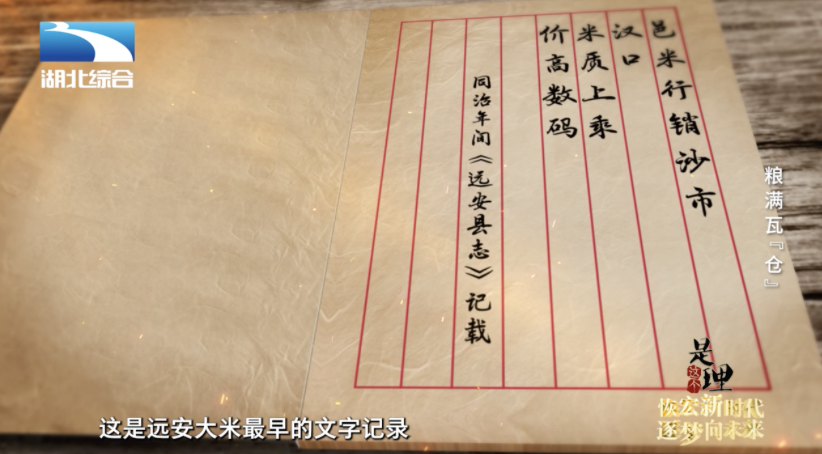 湖北综合
邑米行销沙市
汉口
米质上乘
价高数码
同治年间《远安县志》记载
粮满瓦『仓』
是
这个
理
恢宏新时代
逐梦向未来
这是远安大米最早的文字记录